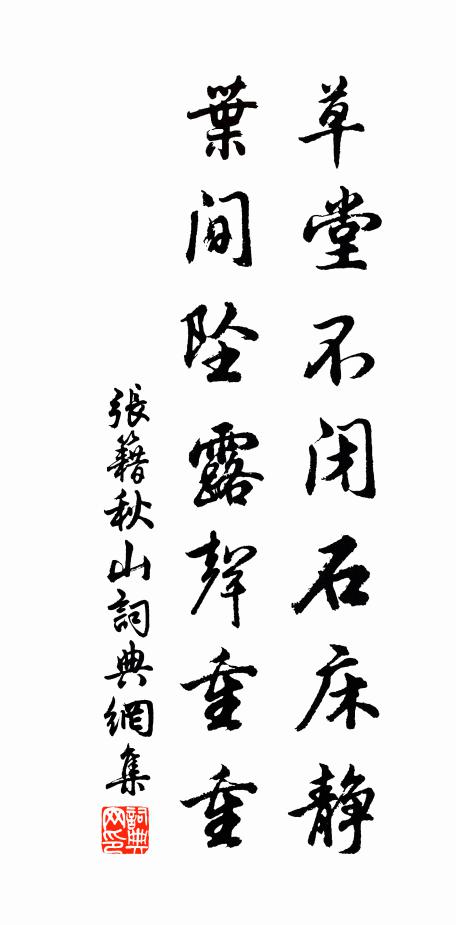 草堂不闭石床静
葉间坠露聲重重
張籍秋山詞典網集
詞典网印